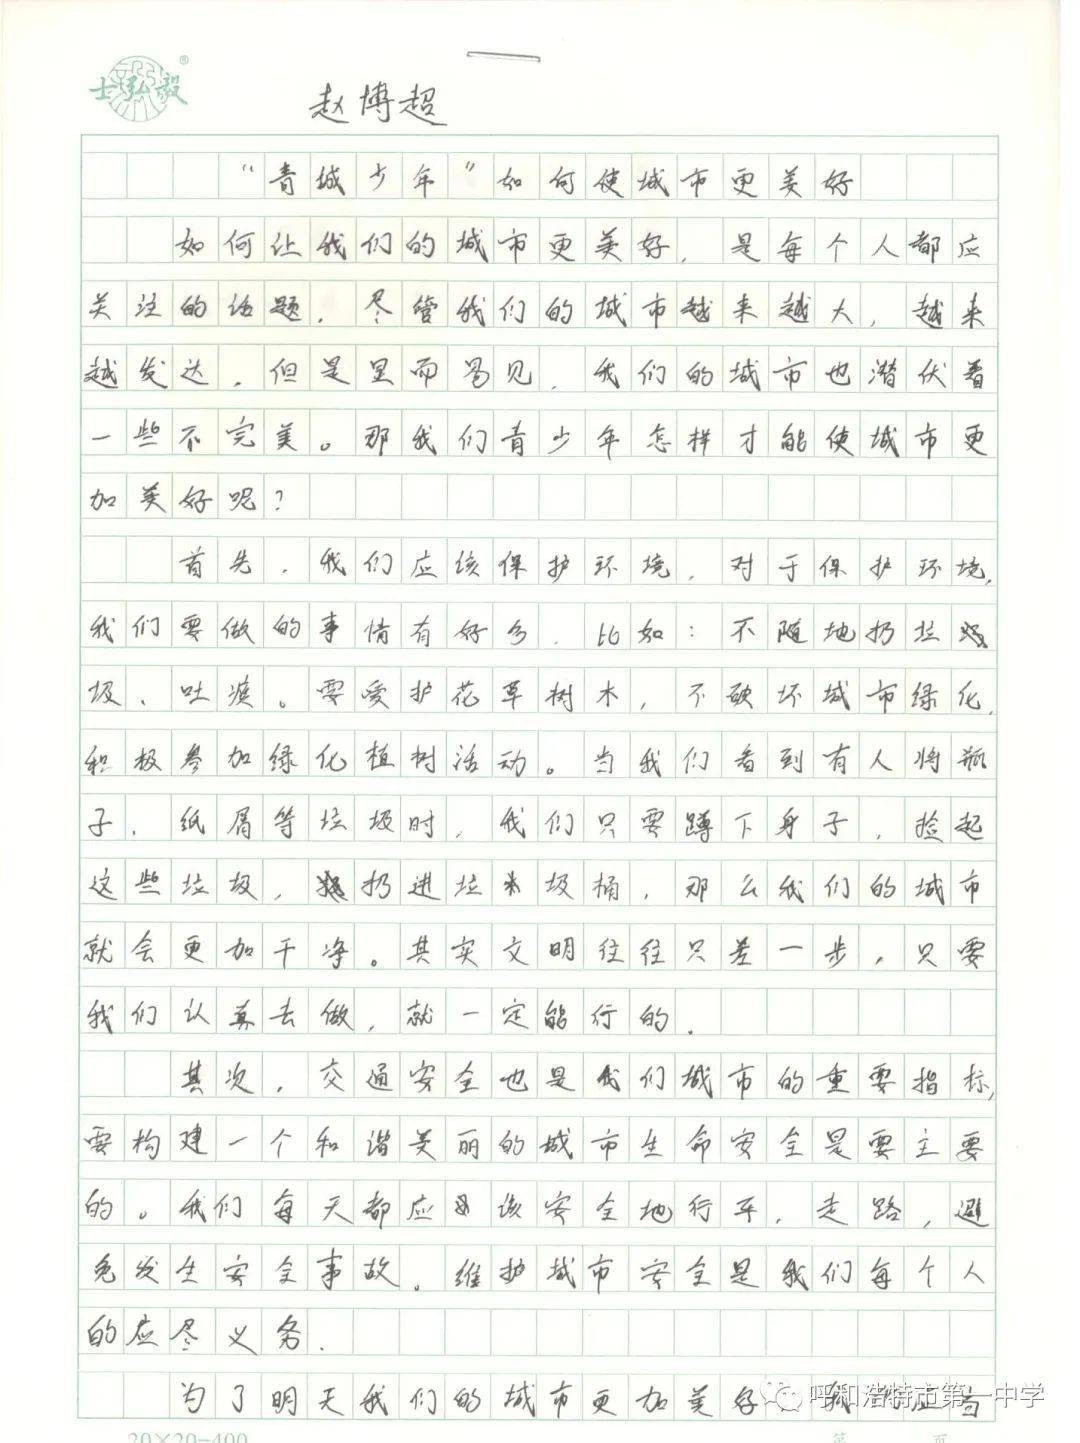 士弘毅®
赵博超
“青城少年”如何使城市更美好
如何让我们的城市更美好，是每个人都应
关注的话题．尽管我们的城市越来越大，越来
越发达，但是显而易见，我们的城市也潜伏着
一些不完美。那我们青少年怎样才能使城市更
加美好呢？
首先，我们应该保护环境，对于保护环境，
我们要做的事情有好多，比如：不随地扔垃
圾、吐痰。要爱护花草树木，不破坏城市绿化，
积极参加绿化植树活动。当我们看到有人将瓶
子、纸屑等垃圾时，我们只要蹲下身子，捡起
这些垃圾，扔进垃圾桶，那么我们的城市
就会更加干净。其实文明往往只差一步，只要
我们认真去做，就一定能行的．
其次，交通安全也是我们城市的重要指标，
要构建一个和谐美丽的城市生命安全是要主要
的。我们每天都应该安全地行车，走路，避
免发生安全事故．维护城市安全是我们每个人
的应尽义务．
为了明天我们的城市更加美好，我们应当
呼和浩特市第一中学
20×20=400
第 页